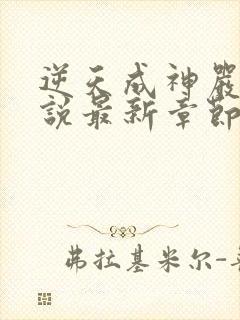 逆天成神嚴
說最新章節
弗拉基米尔-